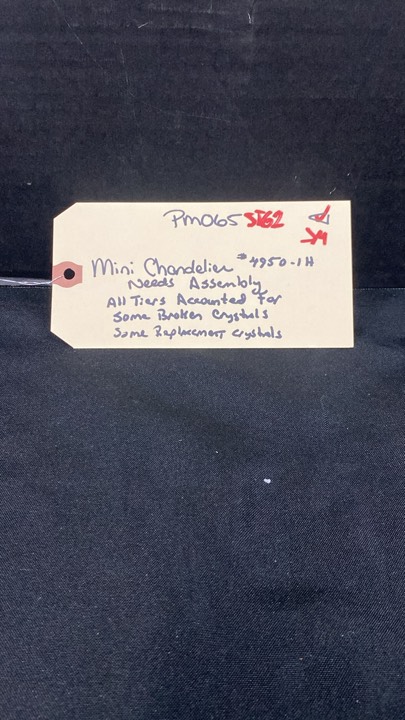 PM065 ST62
Mini Chandelier #4950-1H
Needs Assembly
All Tiers Accounted For
Some Broken Crystals
Some Replacement Crystals